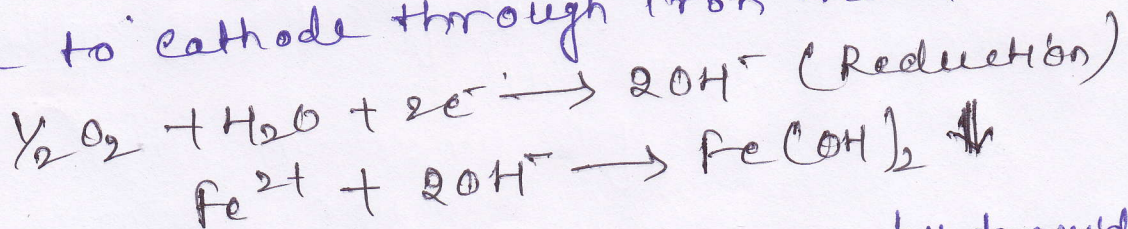 to cathode through iron
½ O₂ + H₂O + 2e⁻ → 2OH⁻ (Reduction)
Fe²⁺ + 2OH⁻ → Fe(OH)₂ ↓